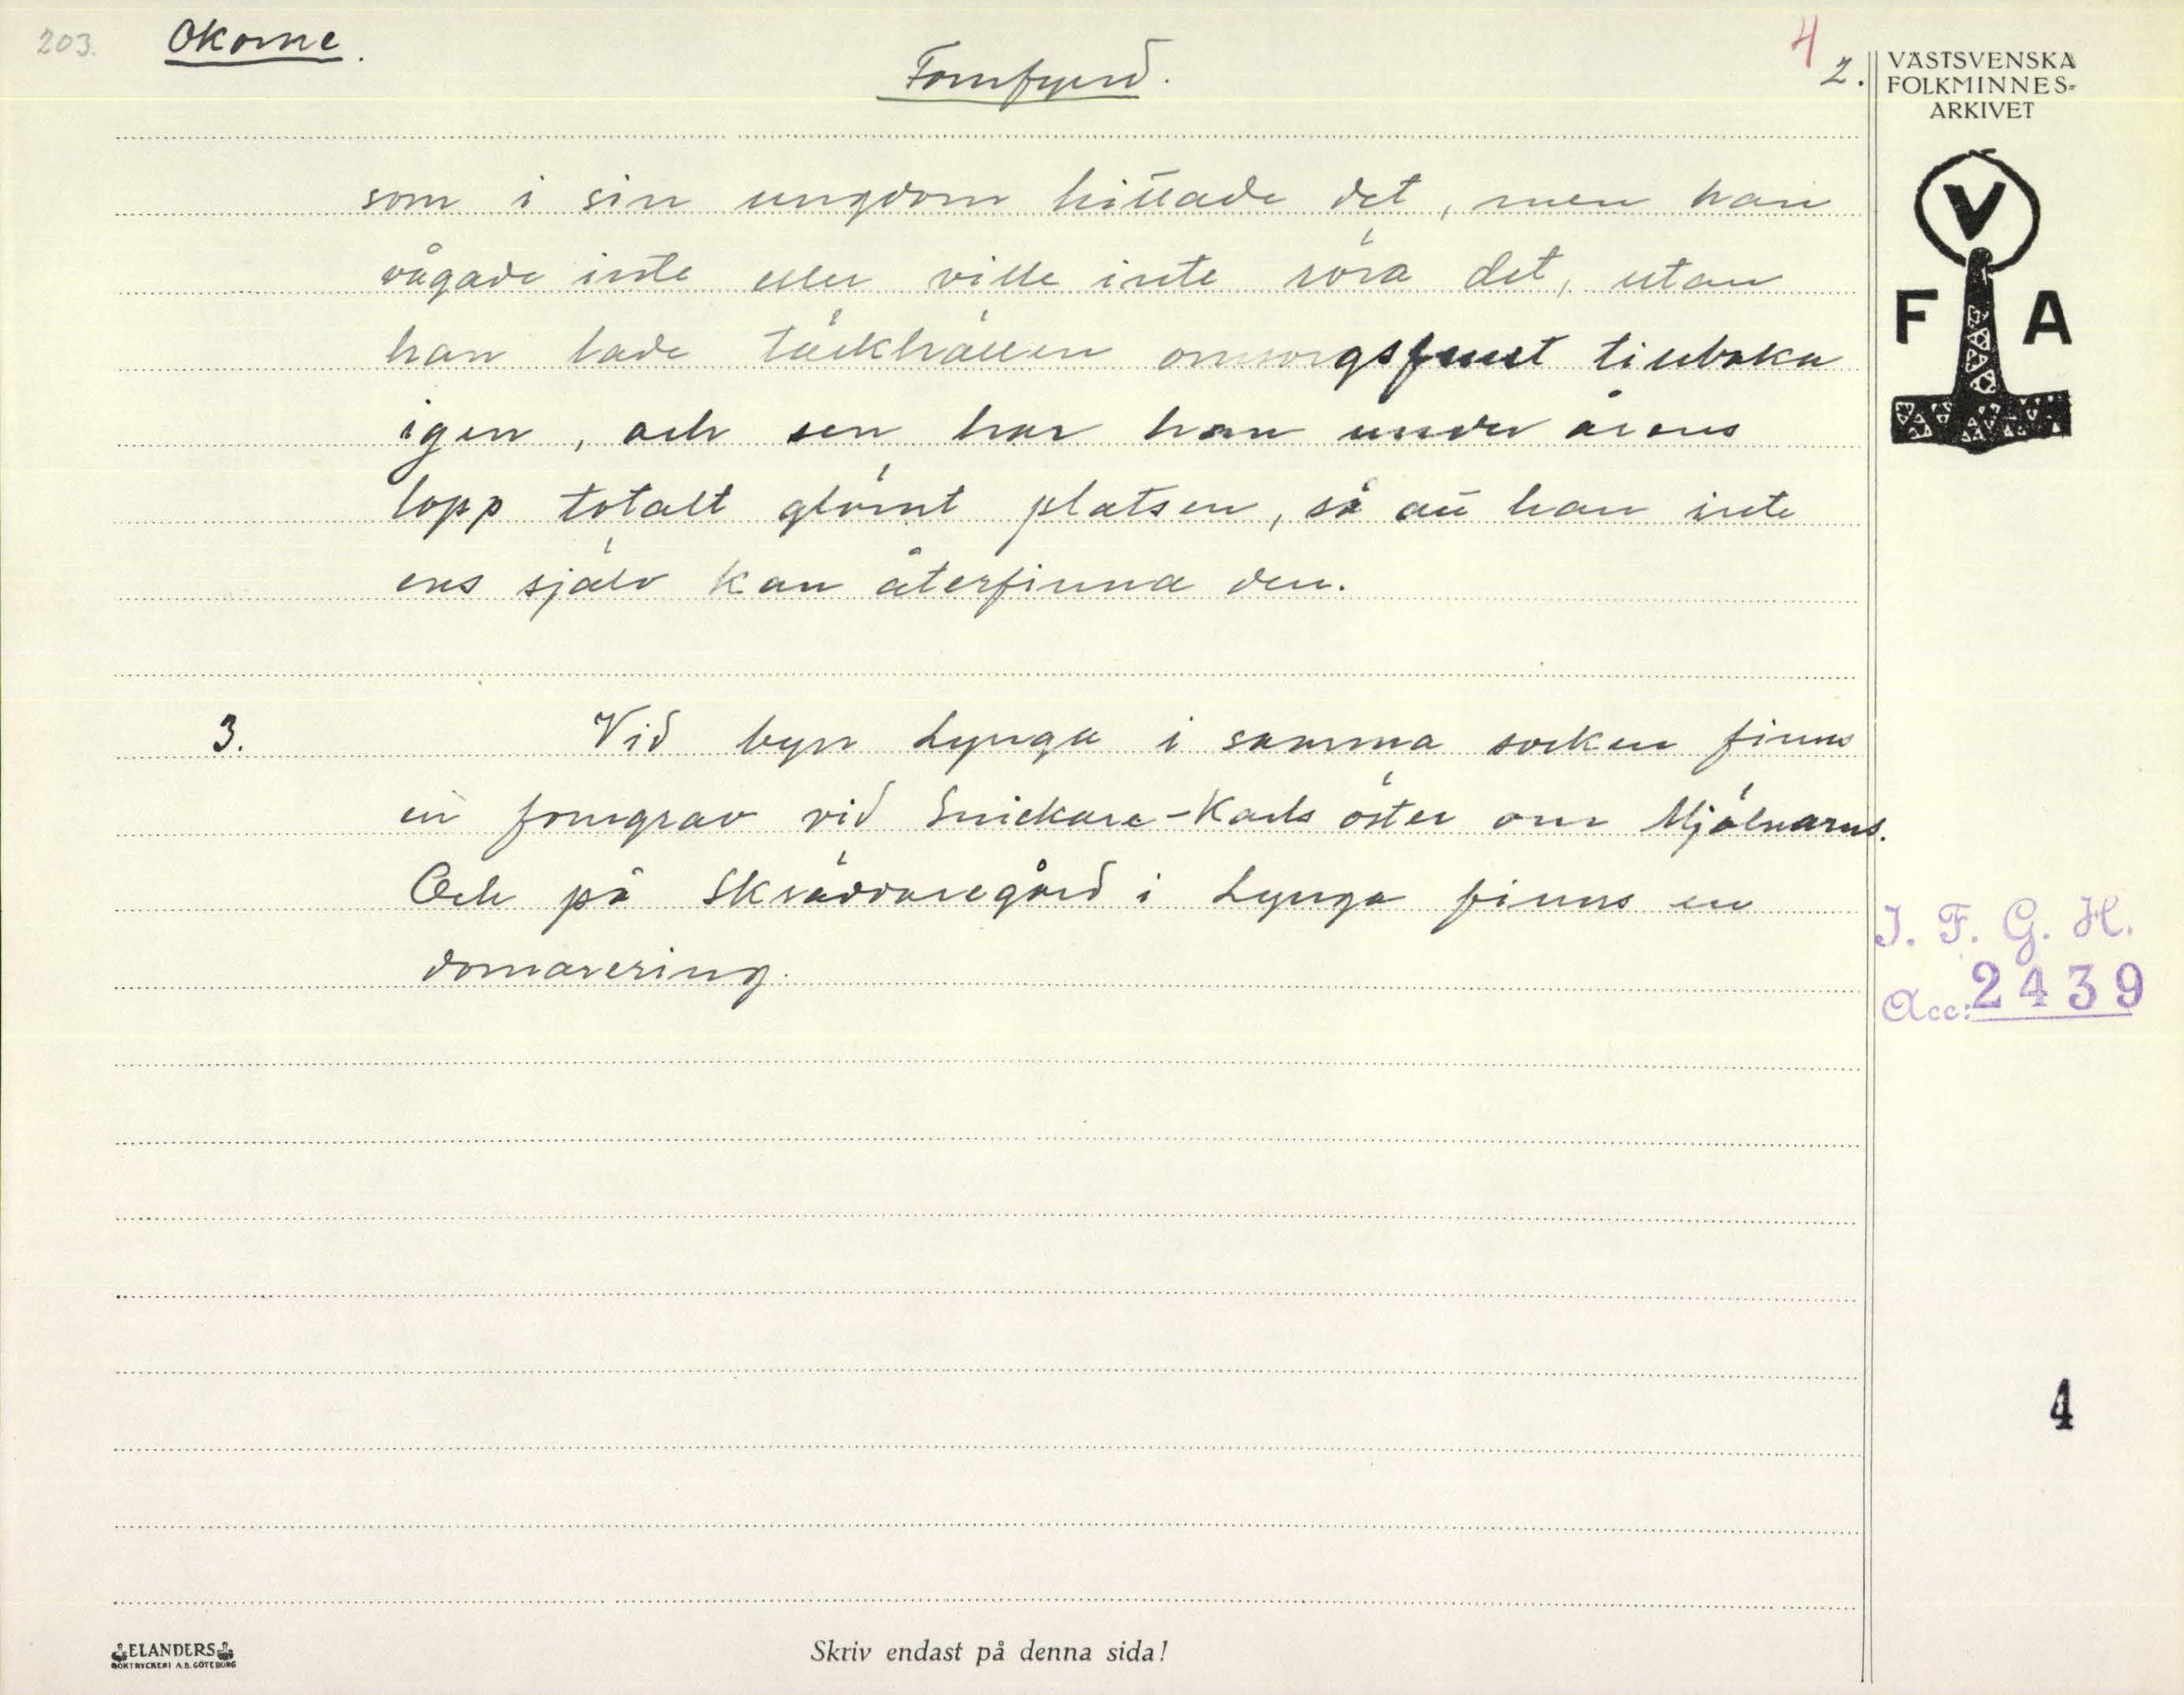 203. Okome.
Fornfynd.
4
2.
VÄSTSVENSKA
FOLKMINNES-
ARKIVET
V
F A
som i sin ungdom hittade det, men han
vågade inte eller ville inte röra det, utan
han lade täckhällen omsorgsfullt tillbaka
igen, och sen har han under årens
lopp totalt glömt platsen, så att han inte
ens själv kan återfinna den.
3. Vid byn Lynga i samma socken finns
en forngrav vid Snickare-Karls öster om Mjölnarns.
Och på Skräddaregård i Lynga finns en
domarering.
I. F. G. H.
Acc: 2439
4
ELANDERS
BOKTRYCKERI A.B. GÖTEBORG
Skriv endast på denna sida!